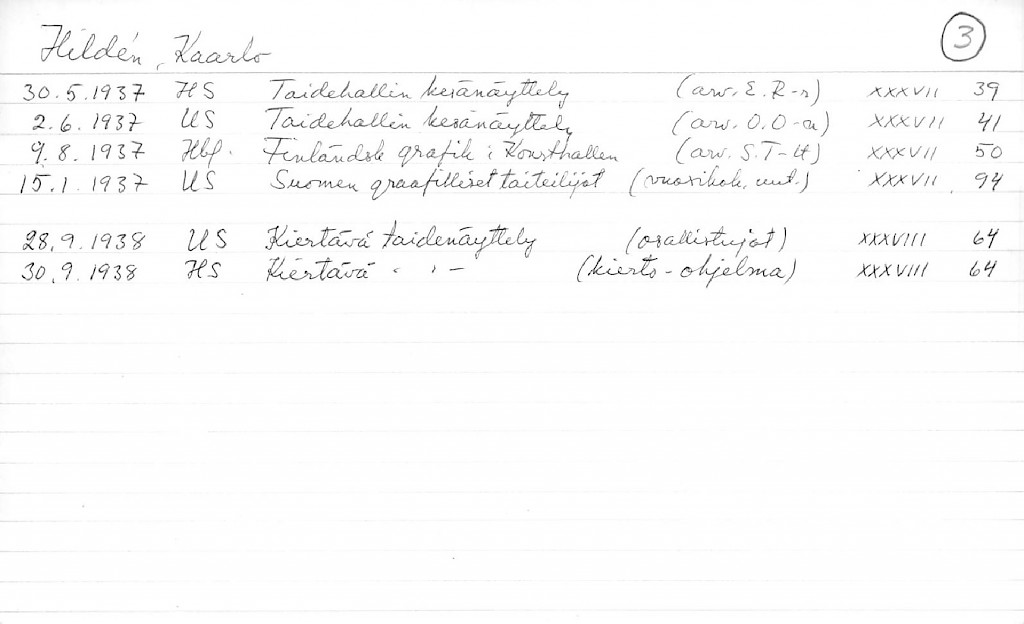 Hildén, Kaarlo 3
30.5.1937 HS Taidehallin kesänäyttely (arv. E. R-r) XXXVII 39
2.6.1937 US Taidehallin kesänäyttely (arv. O.O-a) XXXVII 41
9.8.1937 Hbl. Finländsk grafik i Konsthallen (arv. S.T-ll) XXXVII 50
15.1.1937 US Suomen graafilliset taiteilijat (vuosikok. uut.) XXXVII 94
28.9.1938 US Kiertävä taidenäyttely (osallistujat) XXXVIII 64
30.9.1938 HS Kiertävä - " - (kierto-ohjelma) XXXVIII 64